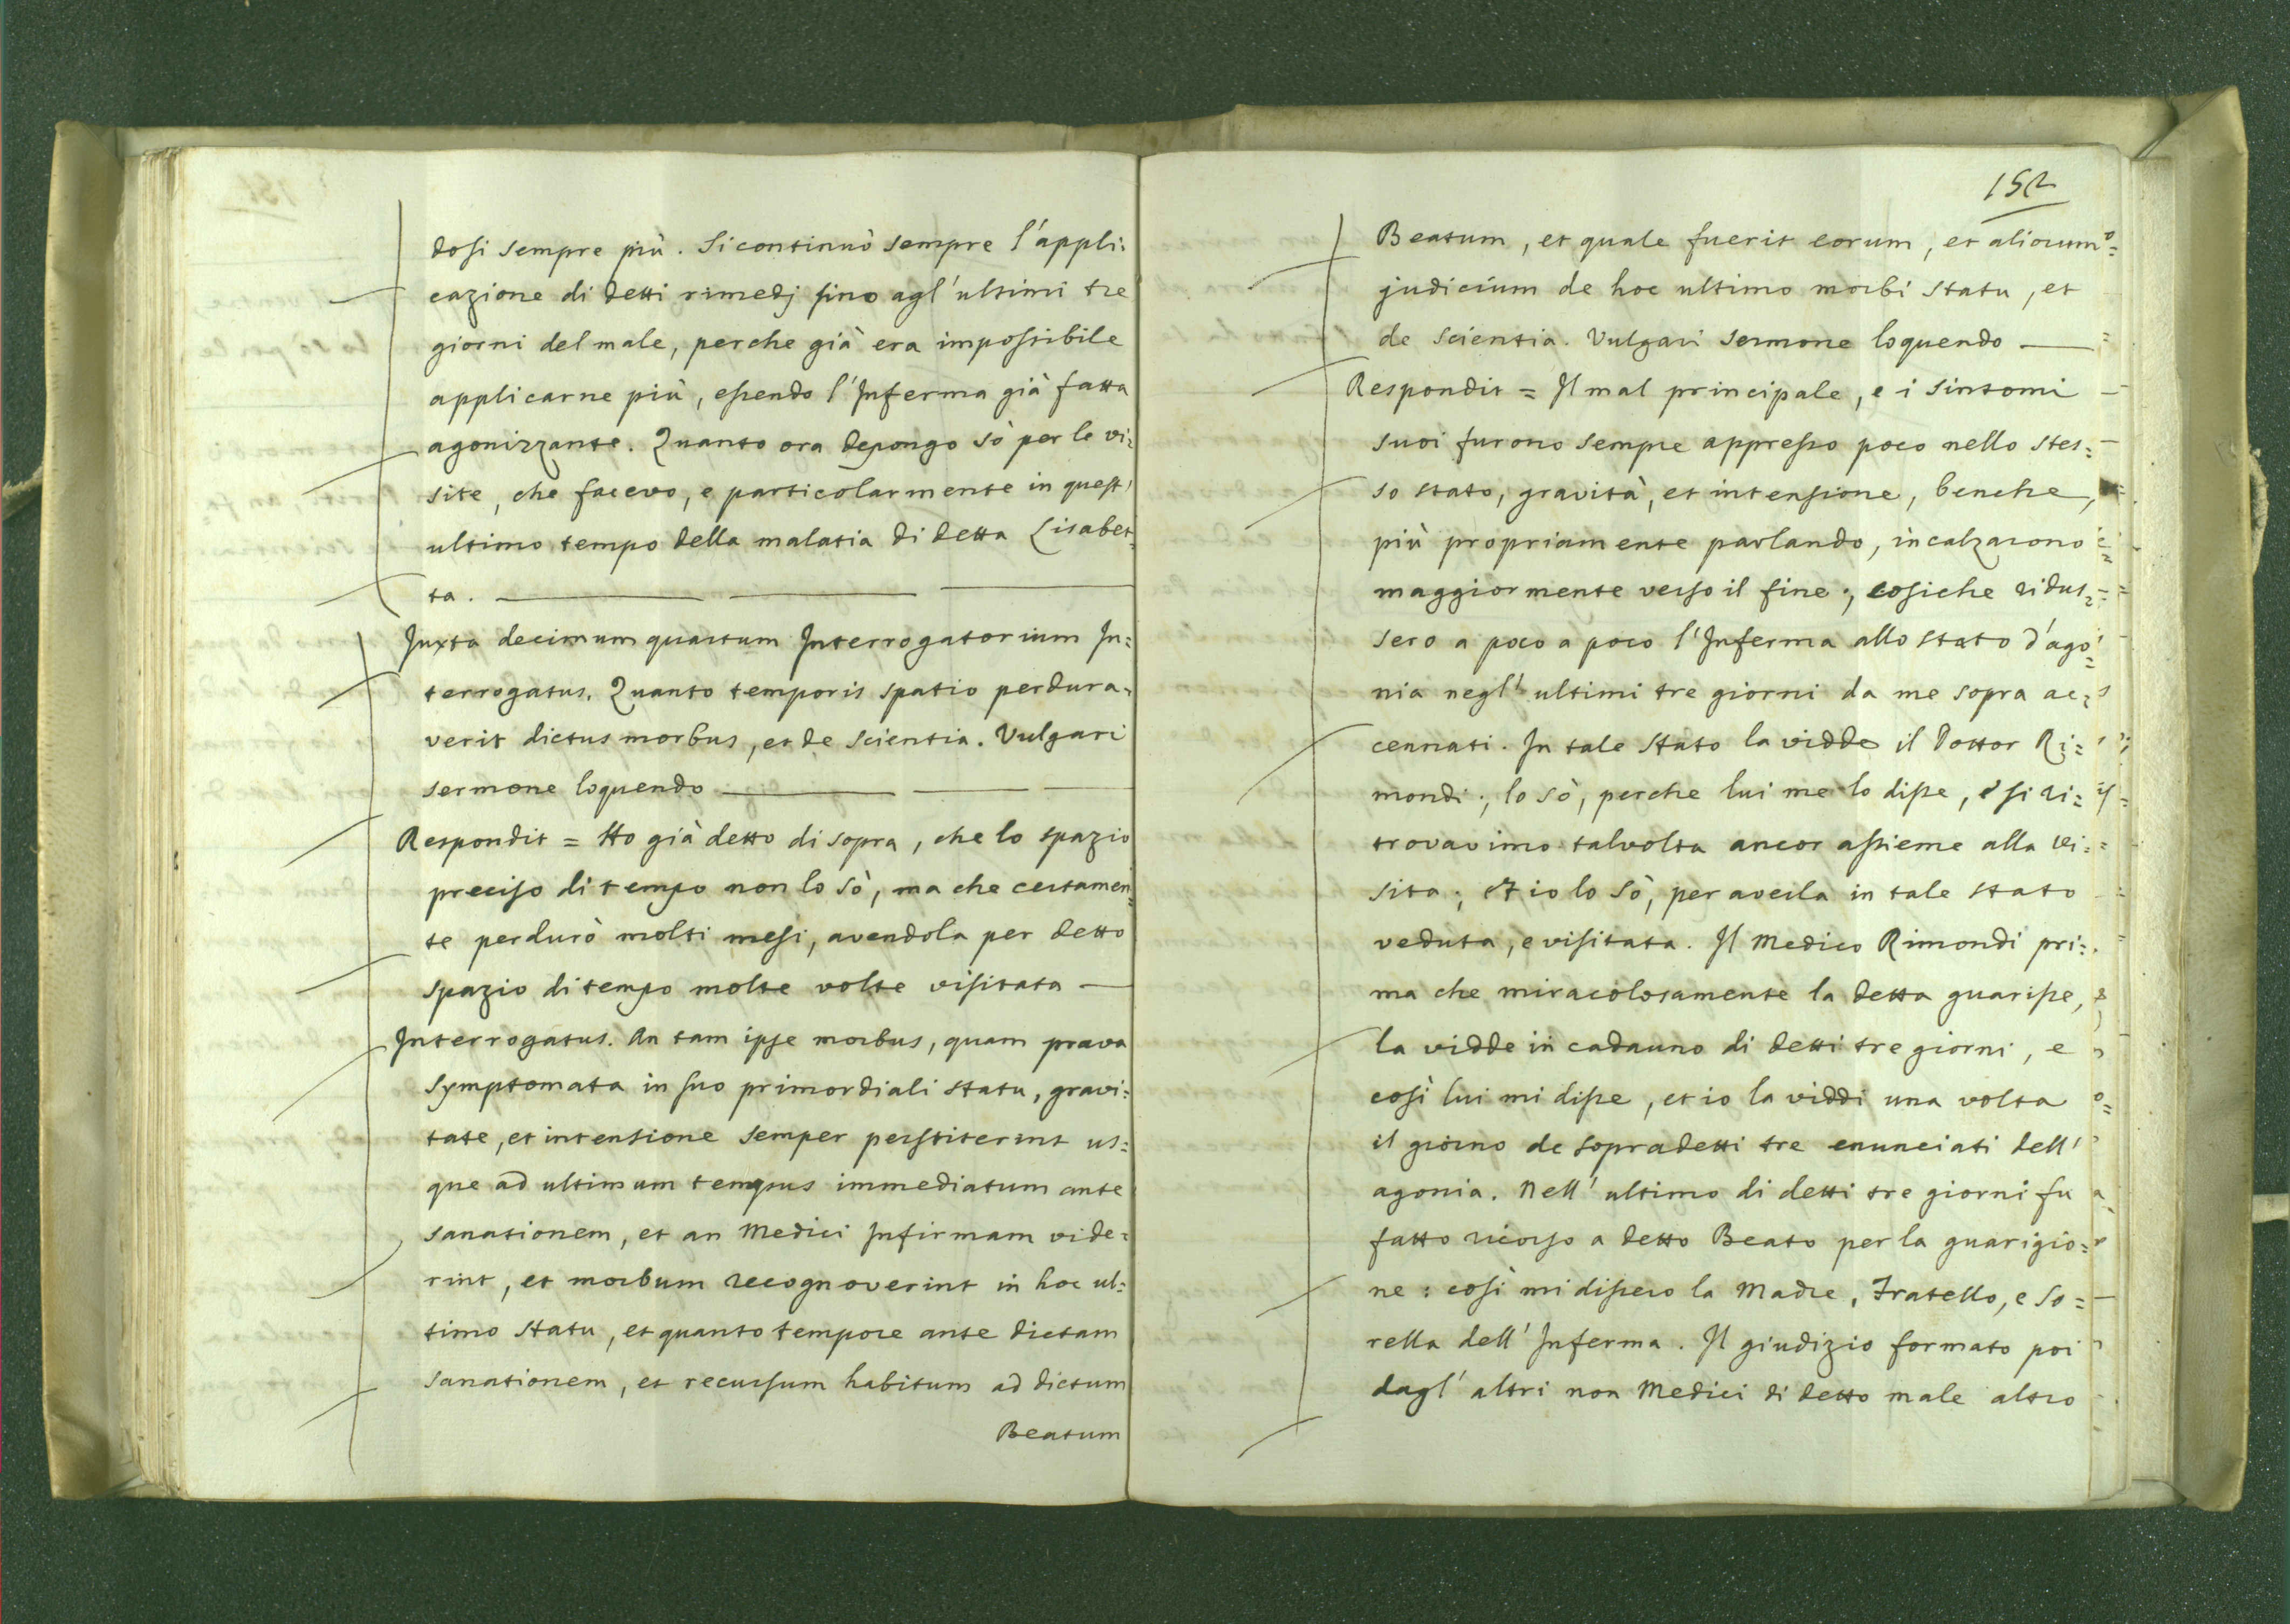 dosi sempre più. Si continuò sempre l'appli:
cazione di detti rimedj sino agl'ultimi tre
giorni del male, perche già era impossibile
applicarne più, essendo l'Inferma già fatta
agonizzante. Quanto ora depongo sò per le vi:
site, che facevo, e particolarmente in quest'
ultimo tempo della malatia di detta Lisabet=
ta.
Juxta decimum quartum Interrogatorium In:
terrogatus. Quanto temporis spatio perdura:
verit dictus morbus, et de scientia. Vulgari
sermone loquendo
Respondit = Ho già detto di sopra, che lo spazio
preciso di tempo non lo sò, ma che certamen=
te perdurò molti mesi, avendola per detto
spazio di tempo molte volte visitata
Interrogatus. An tam ipse morbus, quam prava
symptomata in suo primordiali statu, gravi:
tate, et intensione semper perstiterint us:
que ad ultimum tempus immediatum ante
sanationem, et an Medici Infirmam vide:
rint, et morbum recognoverint in hoc ul:
timo statu, et quanto tempore ante dictam
sanationem, et recursum habitum ad dictum
Beatum
152
Beatum, et quale fuerit eorum, et aliorum
judicium de hoc ultimo morbi statu, et
de scientia. Vulgari sermone loquendo
Respondit = Il mal principale, e i sintomi
suoi furono sempre appresso poco nello stes:
so stato, gravità, et intensione, benche,
più propriamente parlando, incalzarono
maggiormente verso il fine; cosiche ridus:
sero a poco a poco l'Inferma allo stato d'ago=
nia negl'ultimi tre giorni da me sopra ac:
cennati. In tale stato la vidde il Dottor Ri:
mondi; lo sò, perche lui me lo disse, e si ri:
trovavimo talvolta ancor assieme alla vi:
sita; et io lo sò, per averla in tale stato
veduta, e visitata. Il Medico Rimondi pri:
ma che miracolosamente la detta guarisse,
la vidde in cadauno di detti tre giorni, e
così lui mi disse, et io la viddi una volta
il giorno de sopradetti tre enunciati dell'
agonia. Nell'ultimo di detti tre giorni fu
fatto ricorso a detto Beato per la guarigio:
ne: così mi dissero la Madre, Fratello, e So:
rella dell'Inferma. Il giudizio formato poi
dagl'altri non Medici di detto male altro